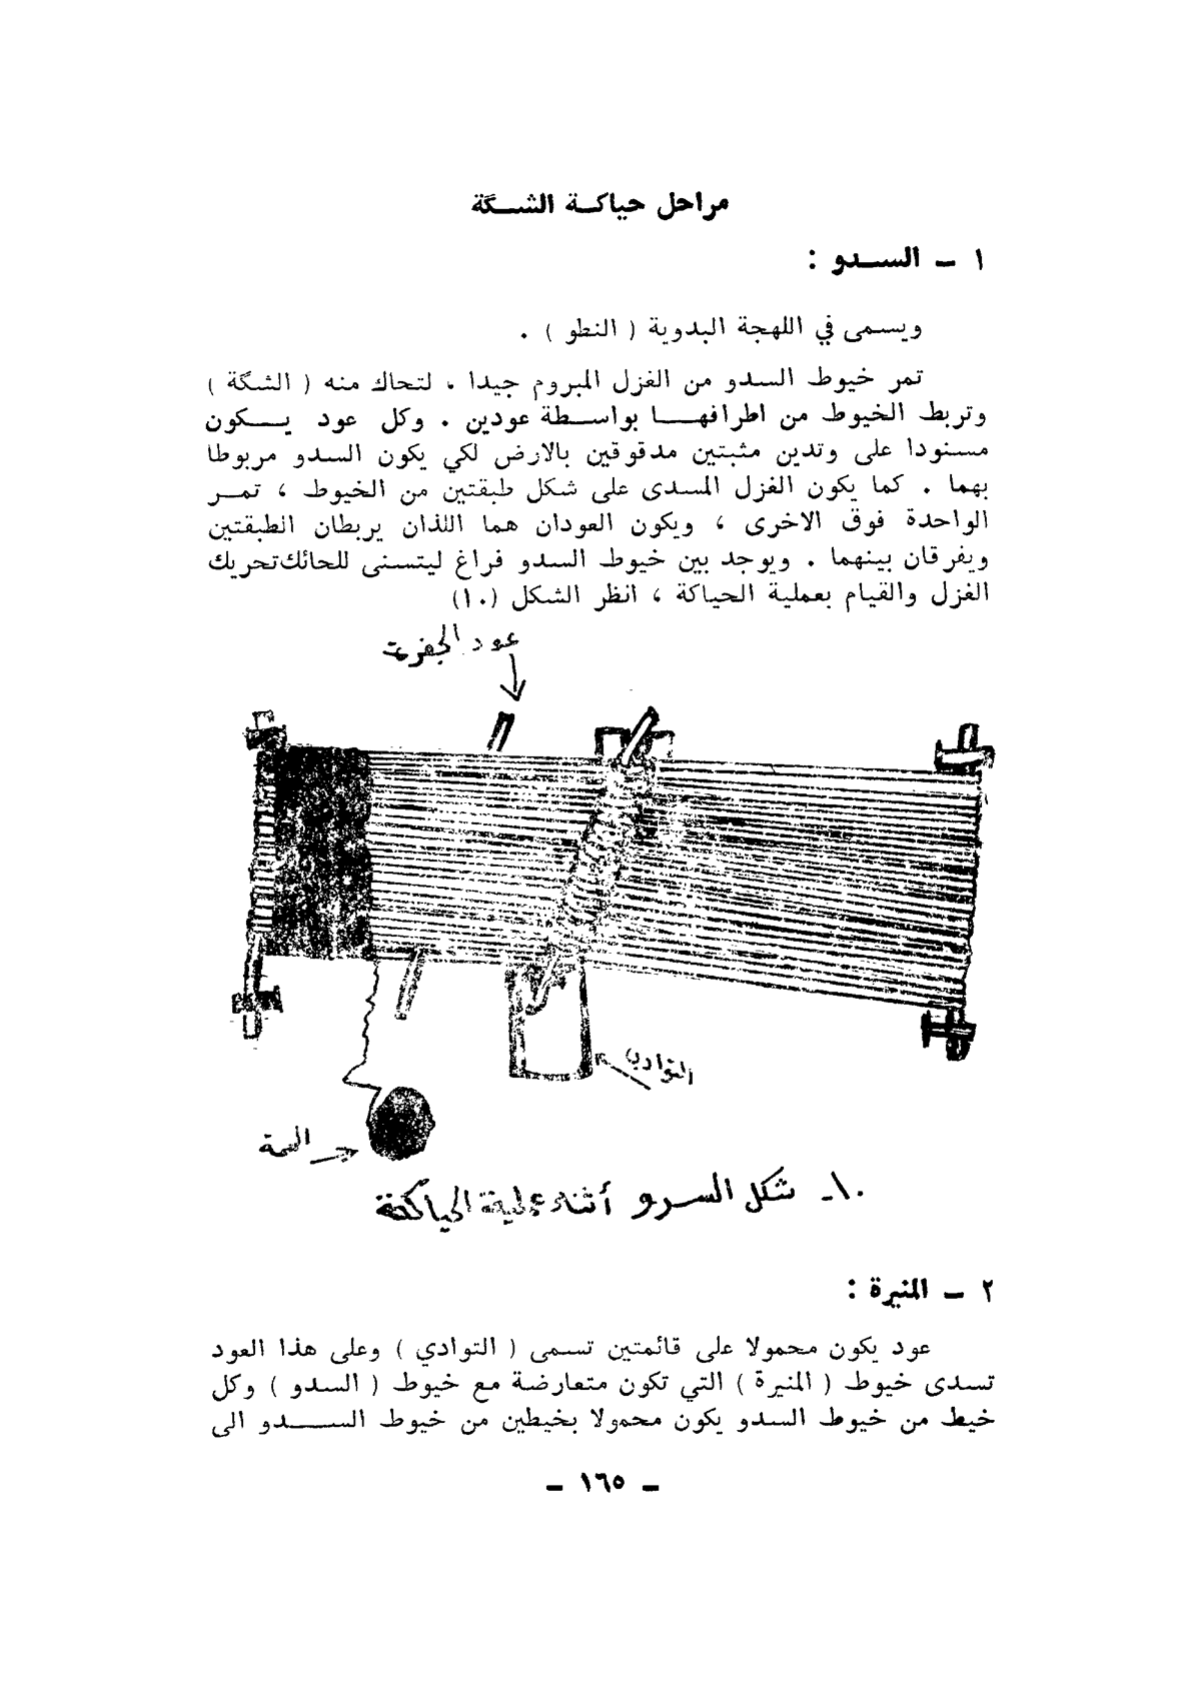 مراحل حياكة الشگة
١ - السدو :
ويسمى في اللهجة البدوية ( النطو ) .
تمر خيوط السدو من الغزل المبروم جيدا ، لتحاك منه ( الشگة )
وتربط الخيوط من اطرافها بواسطة عودين . وكل عود يكون
مسنودا على وتدين مثبتين مدقوقين بالارض لكي يكون السدو مربوطا
بهما . كما يكون الغزل المسدى على شكل طبقتين من الخيوط ، تمر
الواحدة فوق الاخرى ، ويكون العودان هما اللذان يربطان الطبقتين
ويفرقان بينهما . ويوجد بين خيوط السدو فراغ ليتسنى للحائك تحريك
الغزل والقيام بعملية الحياكة ، انظر الشكل (١٠)
عود
التوادي
١٠- شكل السدو أثناء عملية الحياكة
٢ - المنيرة :
عود يكون محمولا على قائمتين تسمى ( التوادي ) وعلى هذا العود
تسدى خيوط ( المنيرة ) التي تكون متعارضة مع خيوط ( السدو ) وكل
خيط من خيوط السدو يكون محمولا بخيطين من خيوط السدو الى
- ١٦٥ -